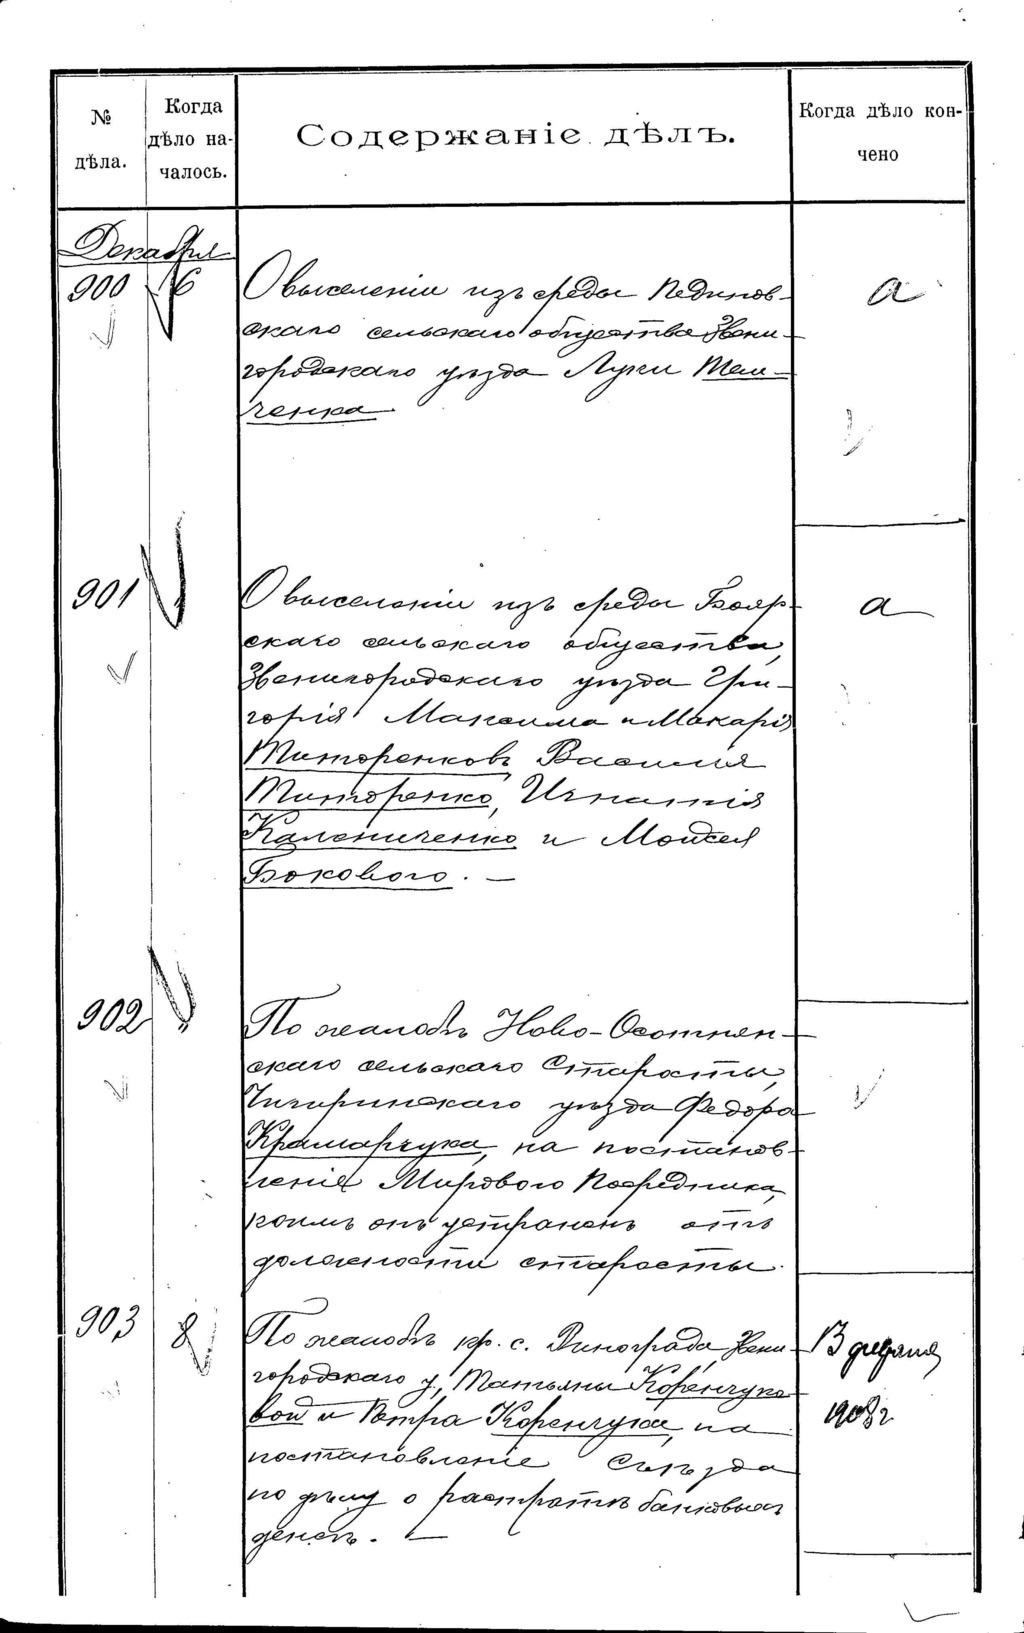 № дѣла.
Когда дѣло на-
чалось.
Содержаніе дѣлъ.
Когда дѣло кон-
чено
Декабря
900 6
О выселеніи изъ среды Пединов-
скаго сельскаго общества Звени-
городскаго уѣзда Луки
ченка
а
901
О выселеніи изъ среды Бояр-
скаго сельскаго общества,
Звенигородскаго уѣзда Гри-
горія Максима и Макарія
Титоренковъ, Василія
Титоренко, Игнатія
Калениченко и Моисея
Бокового. —
а
902
По жалобѣ Ново-Осотнян-
скаго сельскаго Старосты,
Чигиринскаго уѣзда Федора
Крамарчука, на постанов-
ленія Мирового Посредника,
коимъ онъ устраненъ отъ
должности старосты.
903 8
По жалобѣ кр. с. Винограда, Звени-
городскаго у., Татьяны Коренчуко-
вой и Петра Коренчука, на
постановленіе Съѣзда
по дѣлу о растратѣ банковыхъ
денегъ. —
13
1908 г